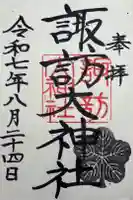 奉拝
諏訪大神社
令和七年八月二十四日